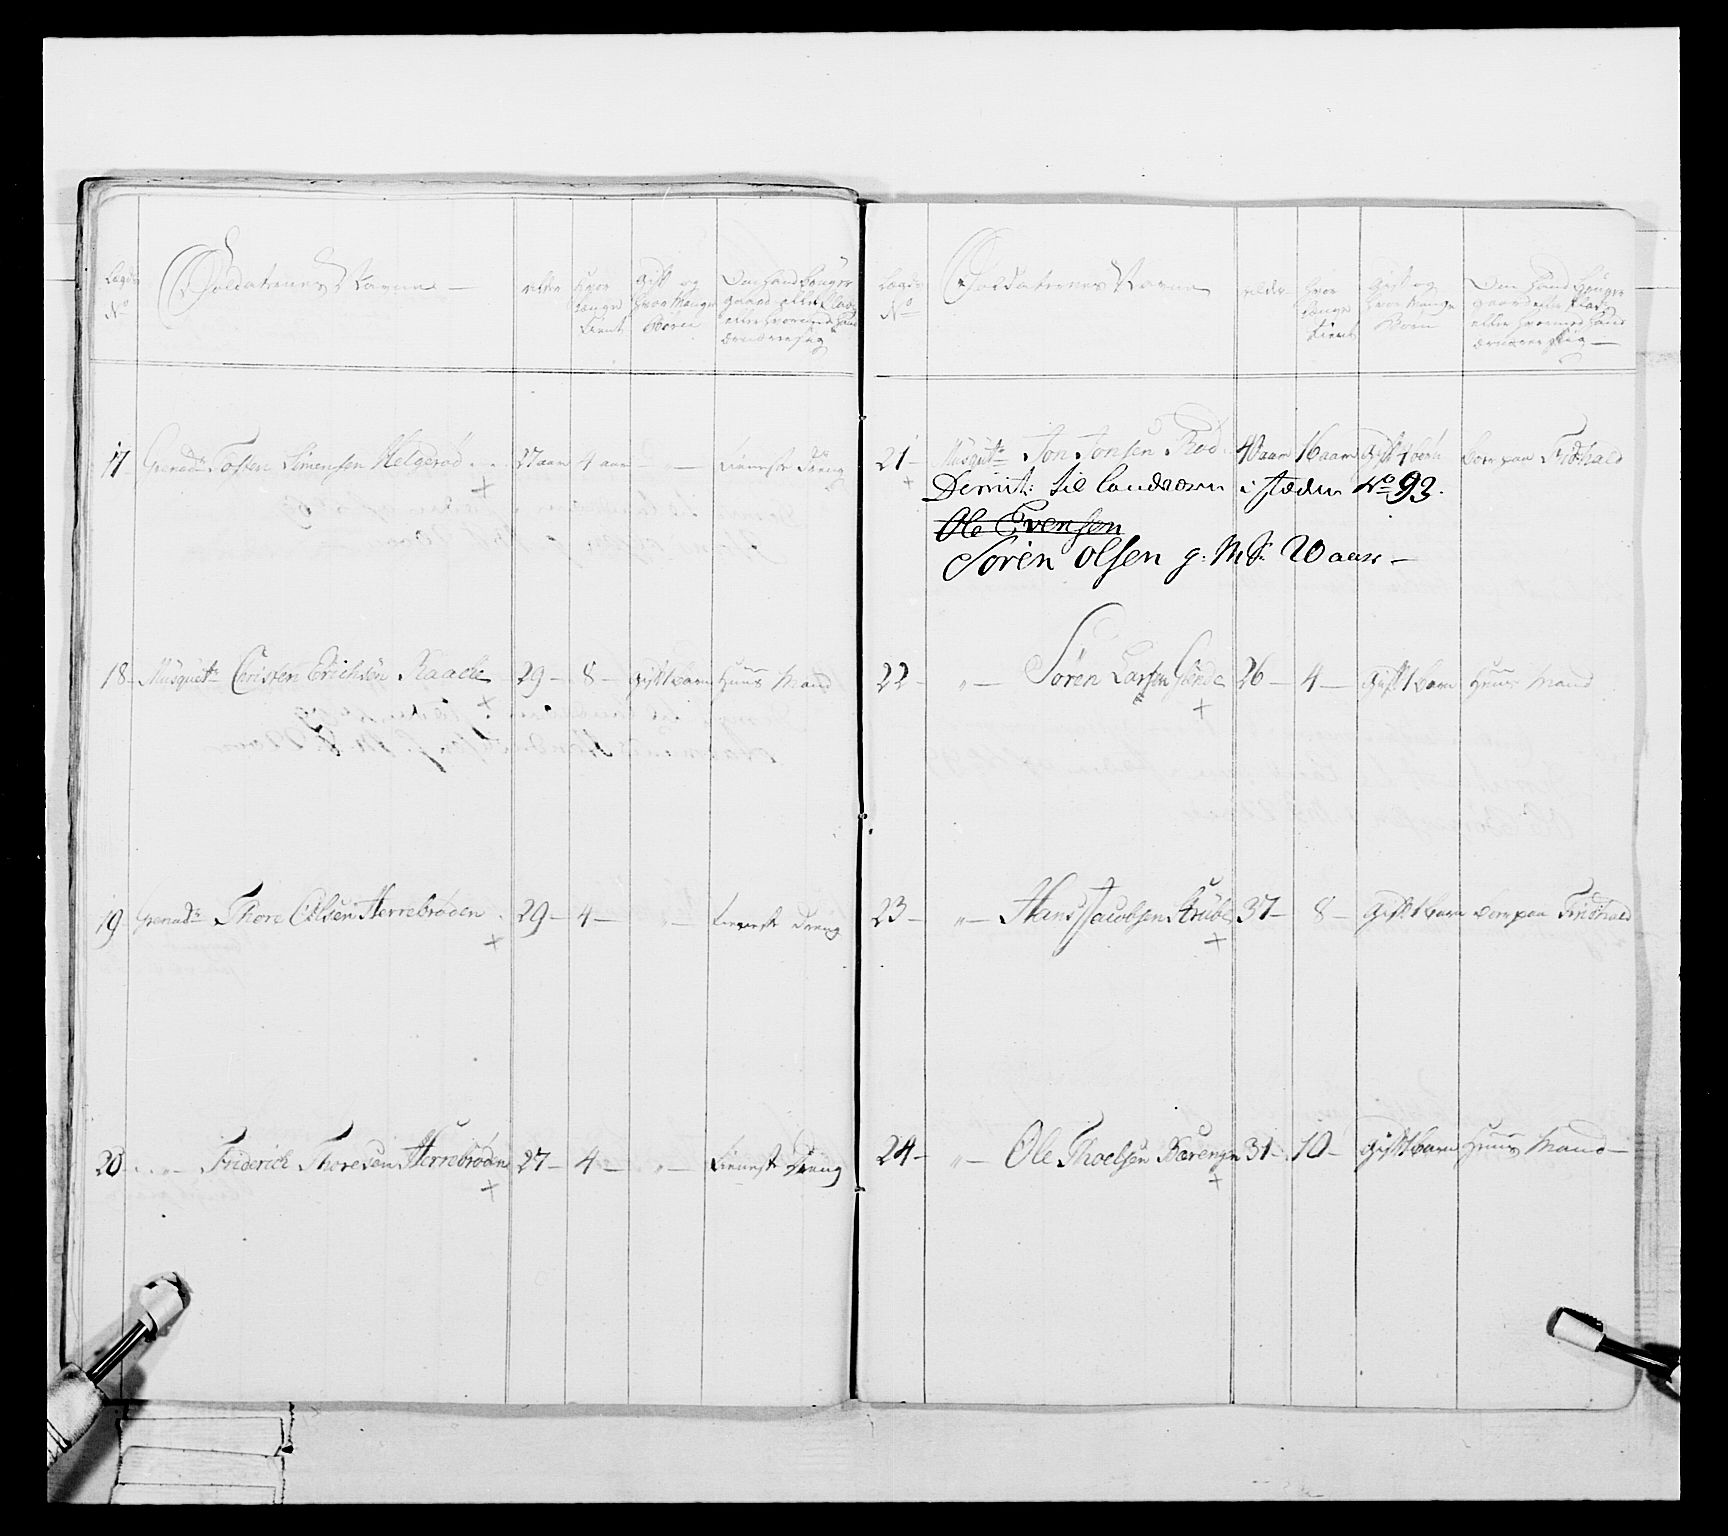 Lægds
No
Soldaternes Navne —
alder
hvor
længe
tient
gift og
hvor Mange
Børn
Om hand bruger
gaard eller Plads
eller hvormed hand
ernærer sig
17 Grenadr Tosten Simensen Helgerød 27 aar 4 aar — tieneste Dreng
18 - Musqutr Christen Erichsøn Raade 29 — 8 — gift 1 barn Huus Mand
19 Grenadr Thore Olsen Herrebrøden 29 — 4 — „— tieneste Dreng
20 „— Friderich Thoresen Herrebrøden 27 — 4 — „— tieneste Dreng
Lægds
No
Soldaternes Navne
alder
hvor
længe
tient
gift og
hvor Mange
Børn
Om hand bruger
gaard eller Plads
eller hvormed hand
ernærer sig —
21 — Musqutr Jon Jonsen Rød 40 aar 16 aar gift 4 børn boer paa Fridrhald
Dimit: til landværn i stæden No 93.
Ole Evensen
Sören Olsen g: M S: 20 aar —
22 — „— Søren Larsen 26 — 4 — gift 1 barn Huus Mand
23 — „— Hans Jacobsen 37 — 8 — gift 1 barn boer paa Fridrhald
24 — „— Ole Thoelsen 31 — 10 — gift 1 barn Huus Mand —